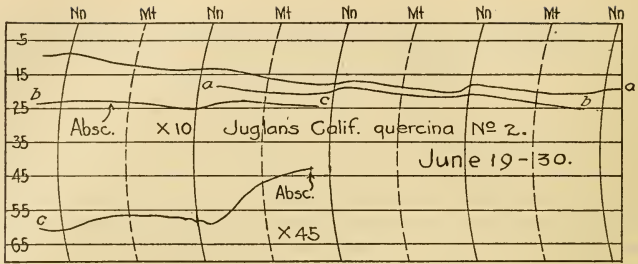 Nn Mt Nn Mt Nn Mt Nn Mt Nn
.5
15
25
35
45
55
65
a
a
b
c
b
Absc. X10 Juglans Calif. quercina Nº 2.
June 19-30.
Absc.
c
X45